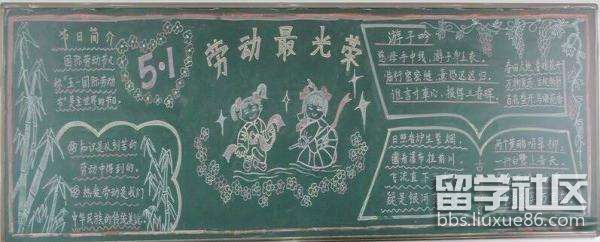 节日简介
国际劳动节又
称"五一国际劳动
节"是全世界的节日。
5·1
劳动最光荣
知识是从刻苦的
劳动中得来的。
热爱劳动是我们
中华民族的传统美德
游子吟
慈母手中线，游子身上衣，
临行密密缝，意恐迟迟归，
谁言寸草心，报得三春晖。
日照香炉生紫烟，
遥看瀑布挂前川，
飞流直下
疑是银河
两个黄鹂鸣翠柳，
一行白鹭上青天
留学社区
bbs.liuxue86.com